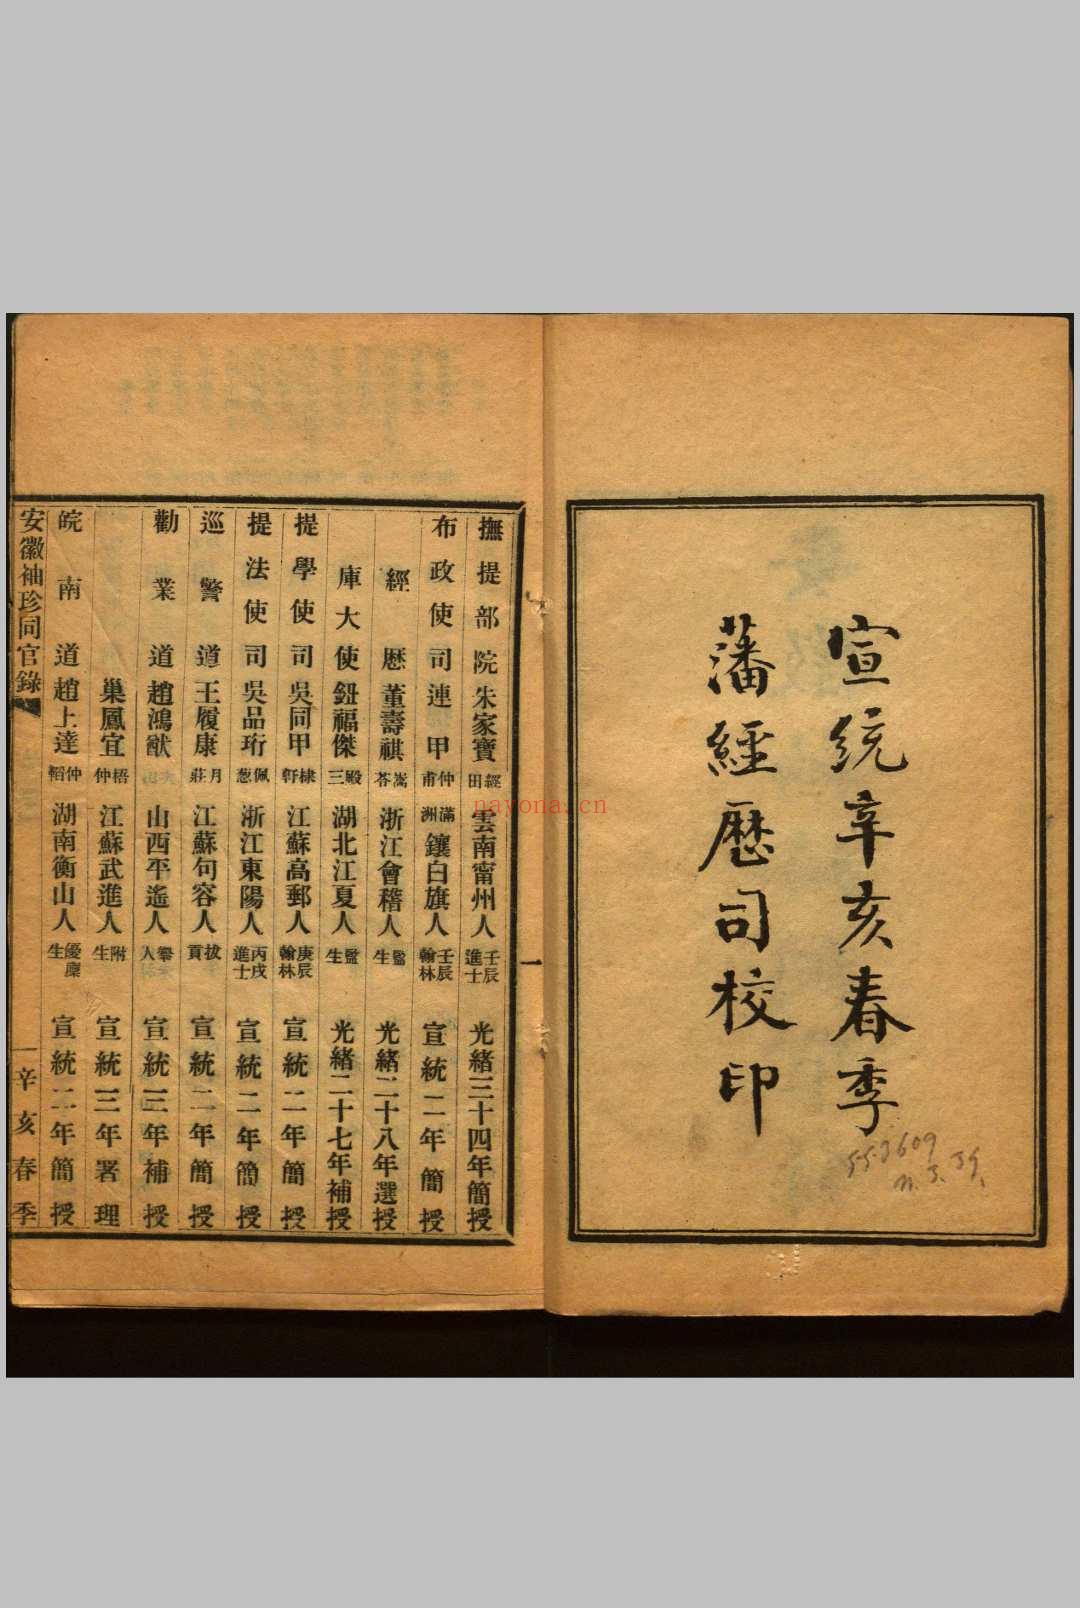 宣統辛亥春季
藩經歷司校印
55-3609
一
撫提部院朱家寶經田雲南甯州人壬辰進士光緒三十四年簡授
布政使司連甲仲甫滿洲鑲白旗人壬辰翰林宣統二年簡授
經歷董壽祺嵩苓浙江會稽人監生光緒二十八年選授
庫大使鈕福傑殿三湖北江夏人監生光緒二十七年補授
提學使司吳同甲棣軒江蘇高郵人庚辰翰林宣統二年簡授
提法使司吳品珩佩葱浙江東陽人丙戌進士宣統二年簡授
巡警道王履康月莊江蘇句容人拔貢宣統二年簡授
勸業道趙鴻猷山西平遙人舉人宣統三年補授
巢鳳宜梧仲江蘇武進人附生宣統三年署理
皖南道趙上達仲韜湖南衡山人優廩生宣統二年簡授
安徽袖珍同官錄 一 辛亥春季
nayona.cn